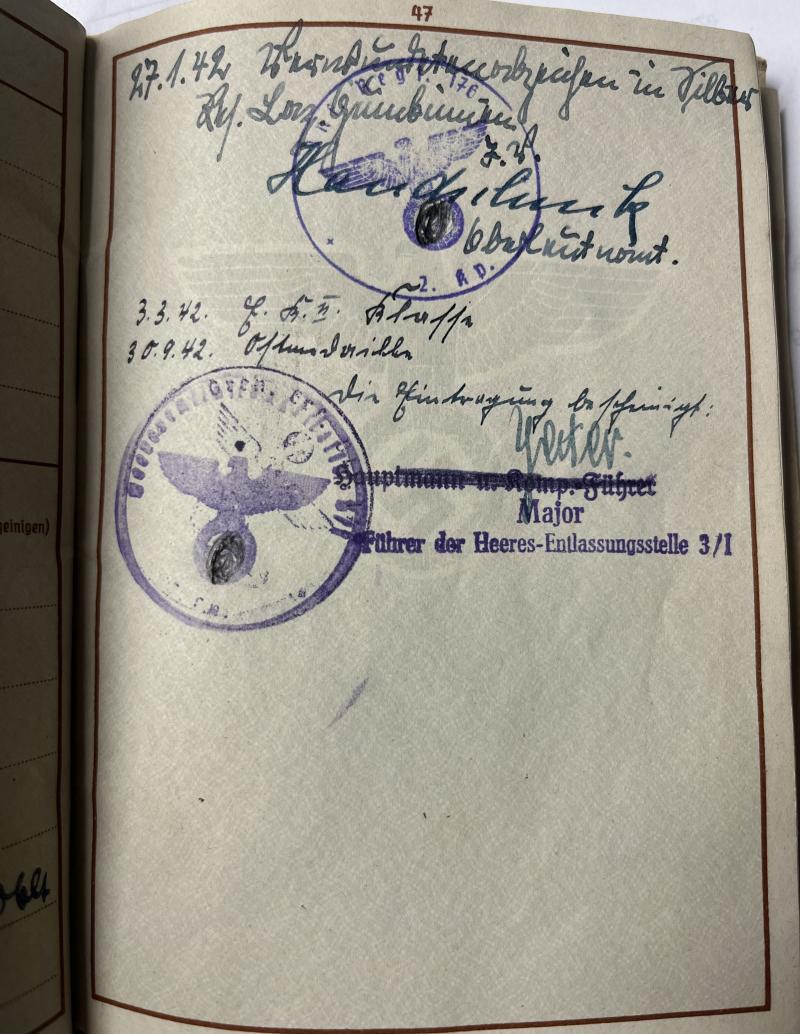 47
27.1.42 Verwundetenabzeichen in Silber
Res. Laz. Gumbinnen
J.V.
Oberleutnant.
Regt. 176
2. Kp.
3.3.42. E. K. II. Klasse
30.9.42. Ostmedaille
Die Eintragung bescheinigt:
Hauptmann u. Komp.-Führer
Major
Führer der Heeres-Entlassungsstelle 3/I
einigen)